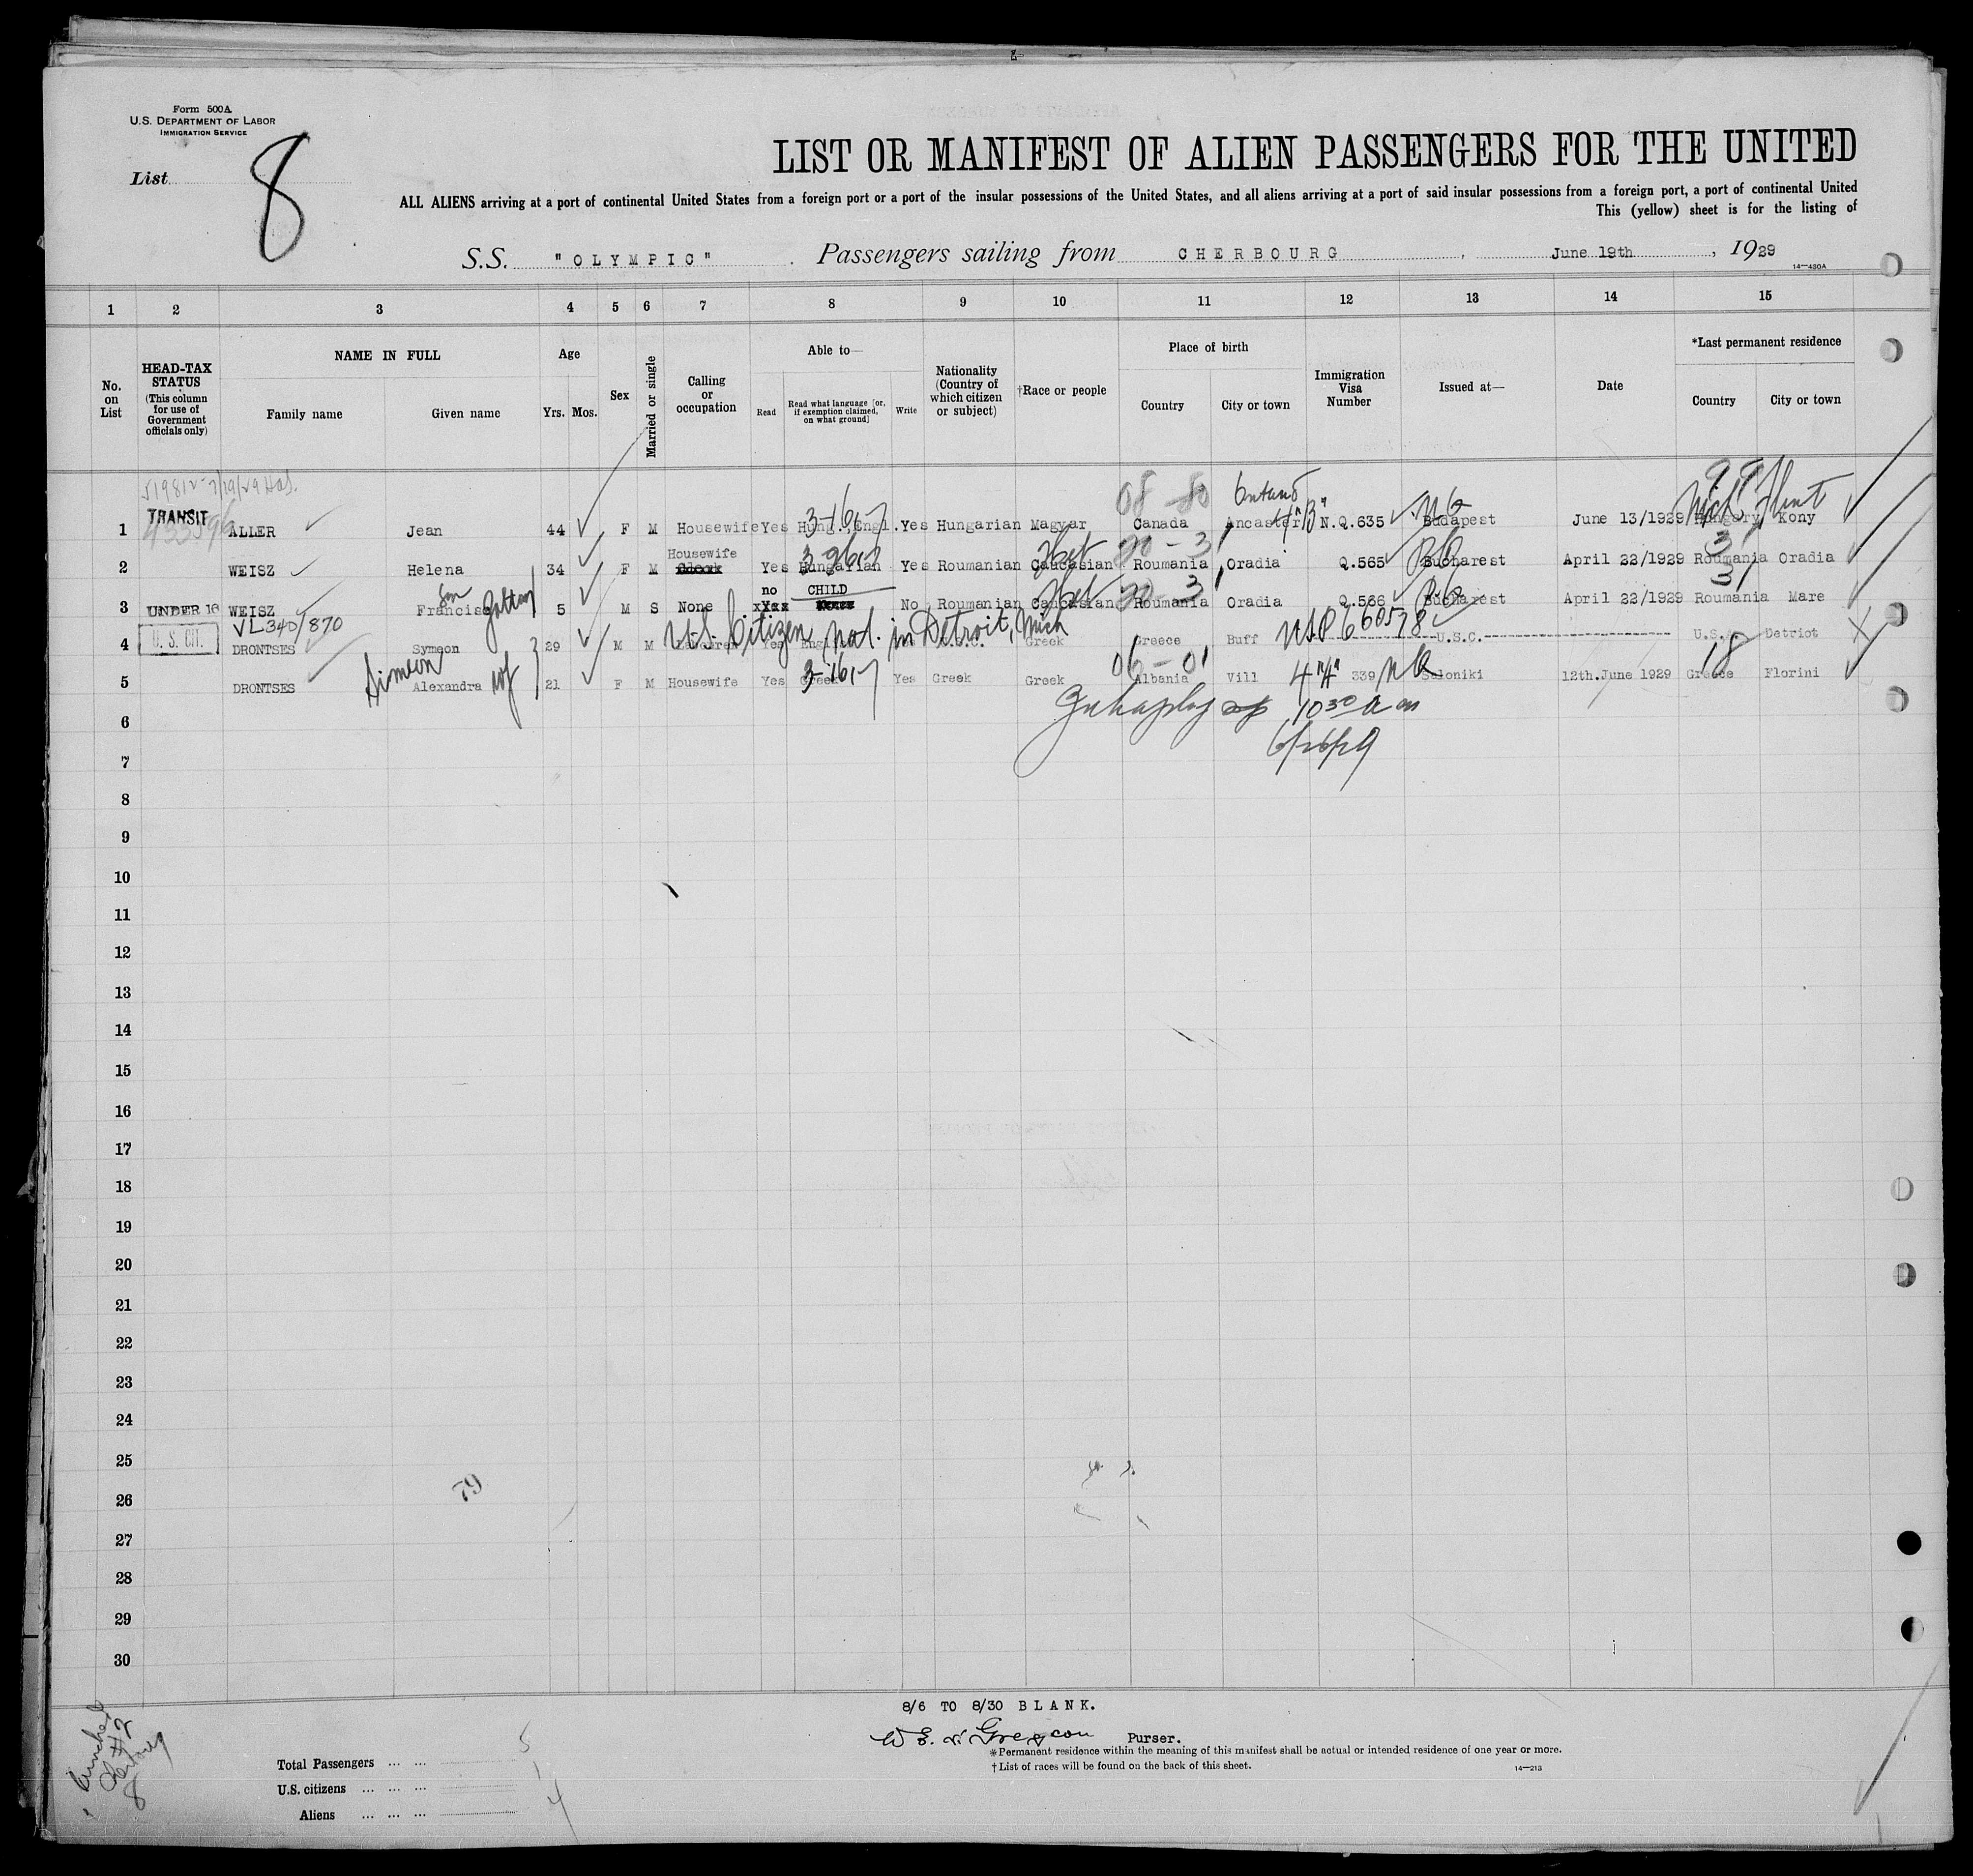 Form 500A
U.S. DEPARTMENT OF LABOR
IMMIGRATION SERVICE
List 8
LIST OR MANIFEST OF ALIEN PASSENGERS FOR THE UNITED
ALL ALIENS arriving at a port of continental United States from a foreign port or a port of the insular possessions of the United States, and all aliens arriving at a port of said insular possessions from a foreign port, a port of continental United
This (yellow) sheet is for the listing of
S.S. "OLYMPIC" . Passengers sailing from CHERBOURG , June 19th , 1929
14—430A
1 2 3 4 5 6 7 8 9 10 11 12 13 14 15
No. on List
HEAD-TAX STATUS (This column for use of Government officials only)
NAME IN FULL
Family name Given name
Age
Yrs. Mos.
Sex
Married or single
Calling or occupation
Able to—
Read
Read what language [or, if exemption claimed, on what ground]
Write
Nationality (Country of which citizen or subject)
†Race or people
Place of birth
Country City or town
Immigration Visa Number
Issued at—
Date
*Last permanent residence
Country City or town
08 - 80 Ontario 99
3-16-7 4"B" N6 Mich Flint
1 TRANSIT ALLER Jean 44 F M Housewife Yes Hung., Engl. Yes Hungarian Magyar Canada Ancaster N.Q.635 Budapest June 13/1929 Hungary Kony
Housewife
2 WEISZ Helena 34 F M Yes Hungarian Yes Roumanian Caucasian Roumania Oradia Q.565 Bucharest April 22/1929 Roumania Oradia
son Zoltan no CHILD 31
3 UNDER 16 WEISZ Francisc 5 M S None No Roumanian Caucasian Roumania Oradia Q.566 Bucharest April 22/1929 Roumania Mare
VL340/870
U.S. Citizen nat. in Detroit, Mich USP 660578
4 U. S. CIT. DRONTSES Symeon 29 M M Yes Greek Greece Buff U.S.C. U.S. Detriot
Simeon wf 3-16-7 06-01 4"A" 18
5 DRONTSES Alexandra 21 F M Housewife Yes Greek Yes Greek Greek Albania Vill 339 Saloniki 12th.June 1929 Greece Florini
10 30 a m
6
6/26/29
7
8
9
10
11
12
13
14
15
16
17
18
19
20
21
22
23
24
25
26
79
27
28
29
30
8/6 TO 8/30 BLANK.
Purser.
*Permanent residence within the meaning of this manifest shall be actual or intended residence of one year or more.
†List of races will be found on the back of this sheet.
14—213
Total Passengers ... ... 5
U.S. citizens ... ... ... 1
Aliens ... ... ... 4